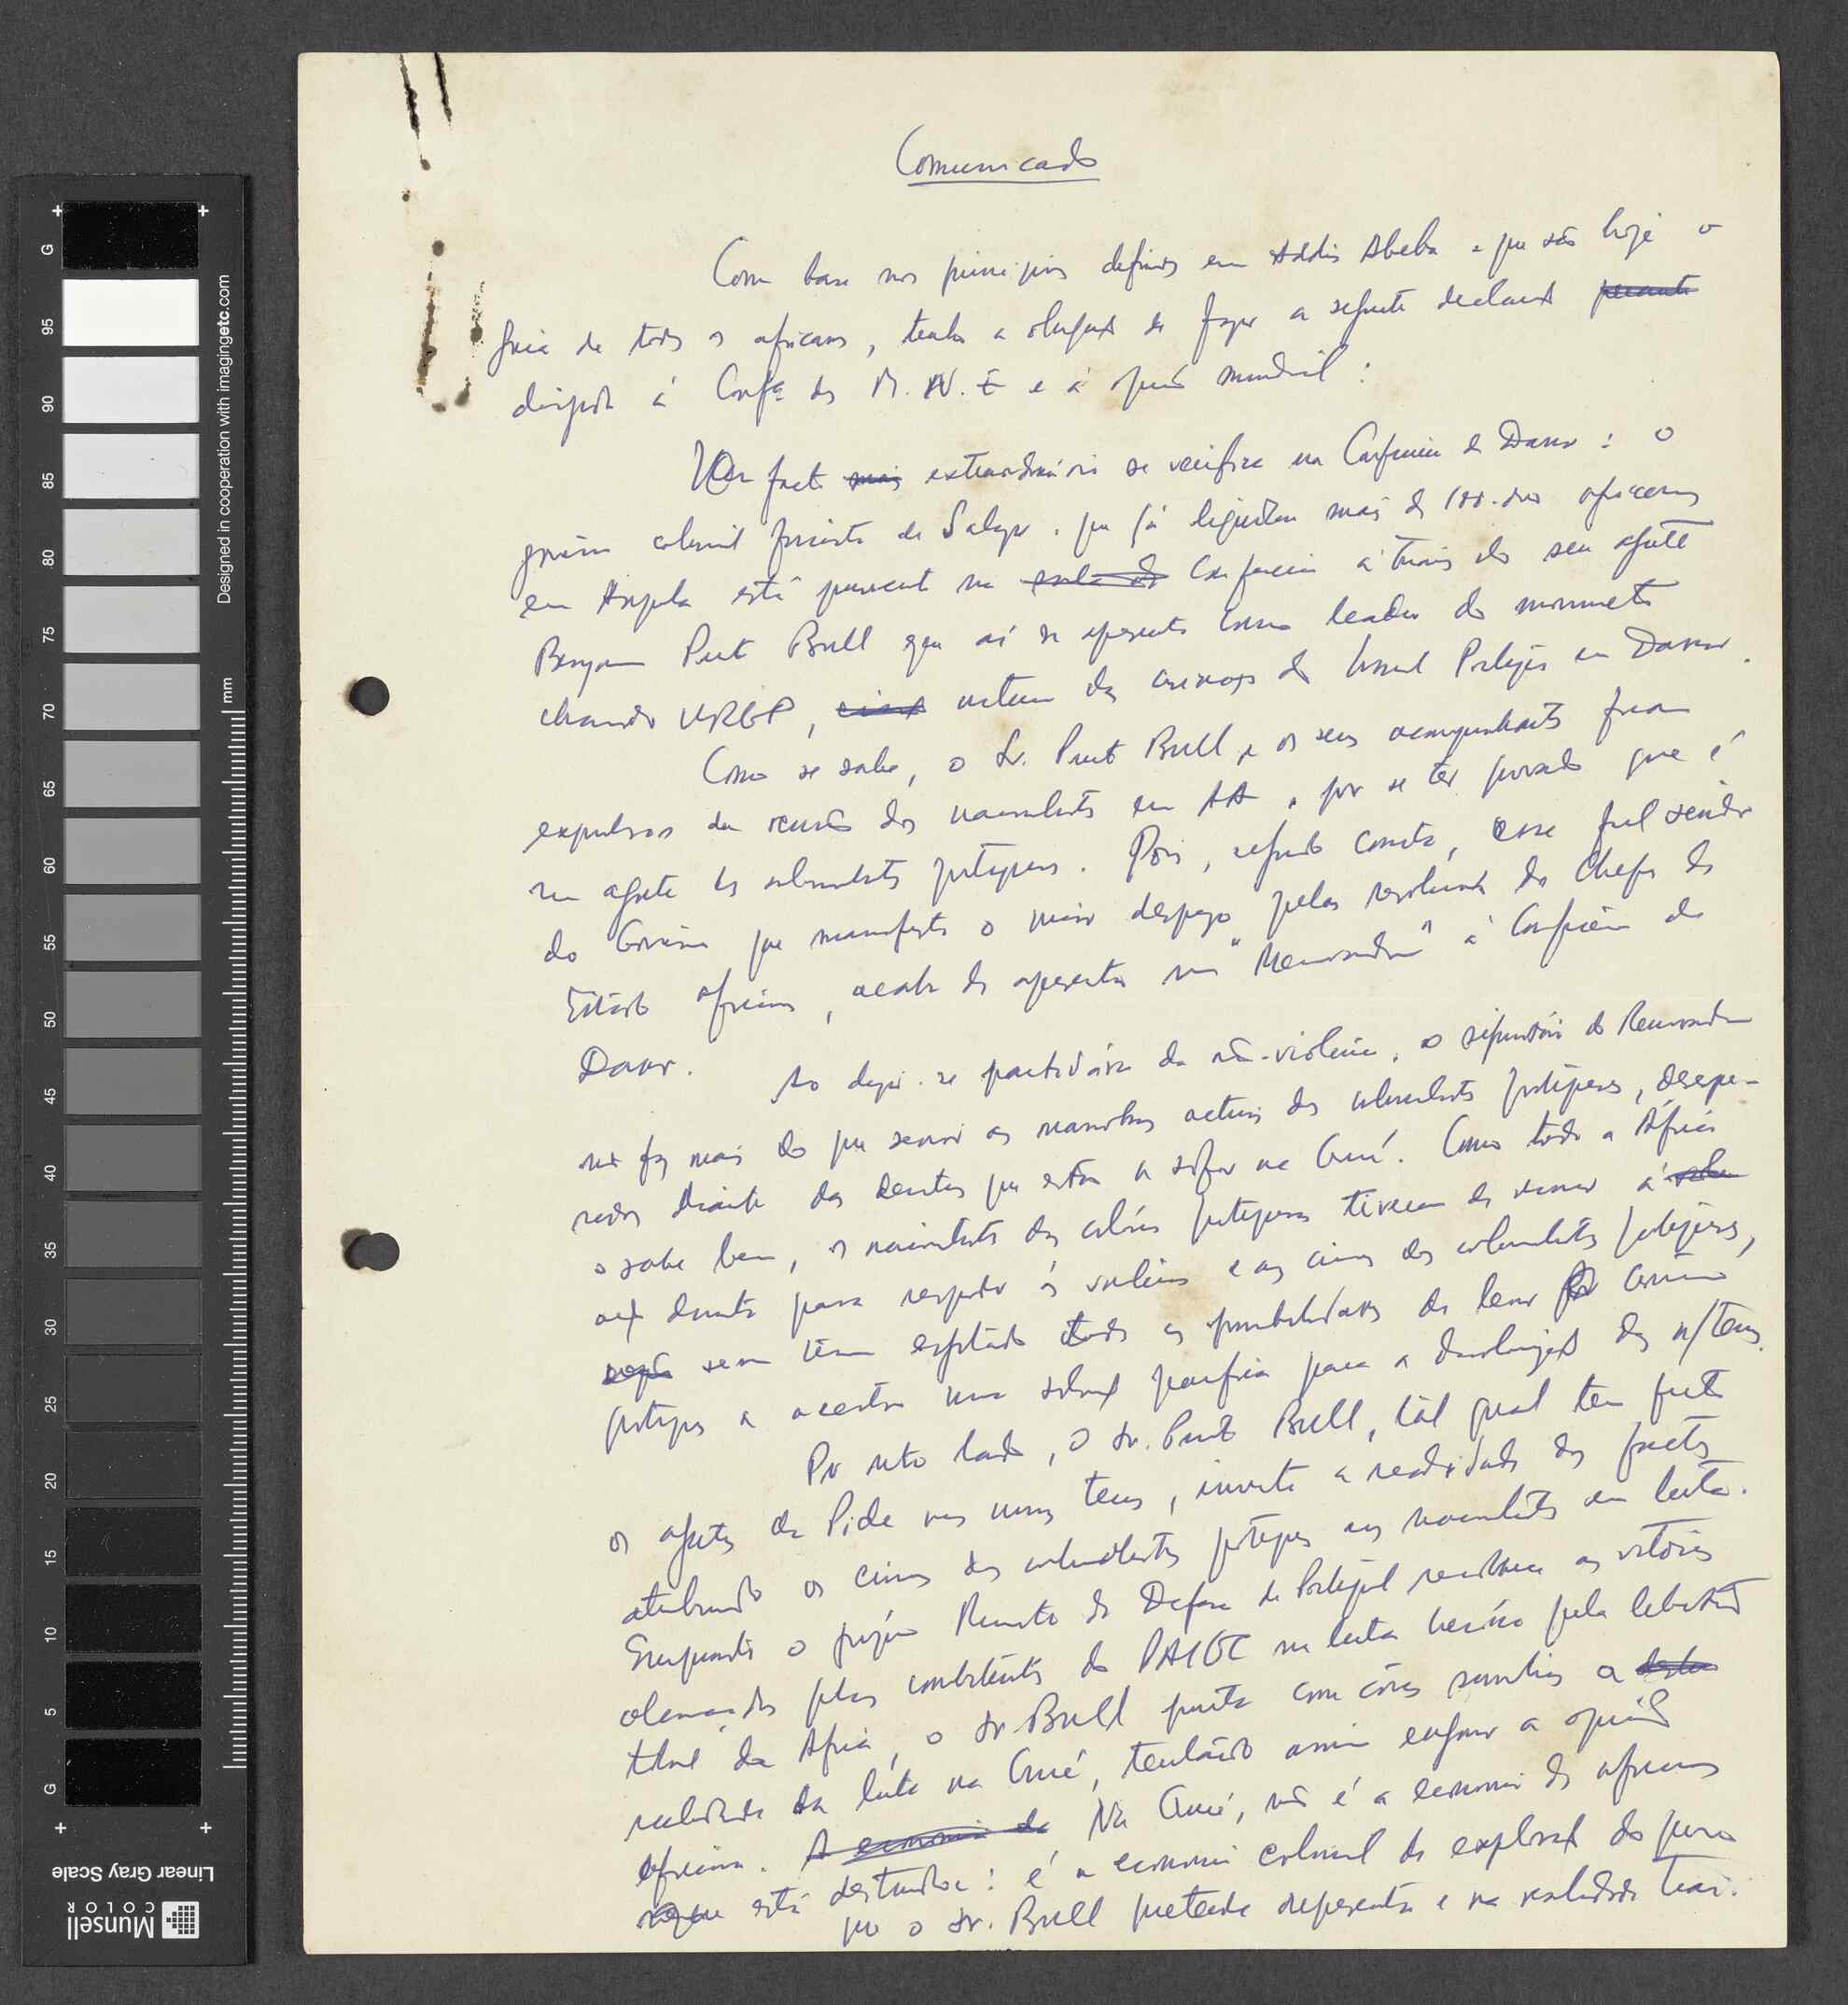 Comunicado
Com base nos princípios definidos em Addis Abeba e que são hoje o
guia de todos os africanos, tenho a obrigação de fazer a seguinte declaração perante
dirigida à Confª dos M. N. E e à opinião mundial:
Um facto mais extraordinário se verifica na Conferência de Dakar: o
governo colonial fascista de Salazar, que já liquidou mais de 100.000 africanos
em Angola está presente na sala da Conferência através do seu agente
Benjamim Pinto Bull que aí se apresenta como leader do movimento
chamado URGP, criação nascida dos serviços do Consul Português em Dakar.
Como se sabe, o Sr. Pinto Bull e os seus acompanhantes foram
expulsos da reunião dos nacionalistas em AA, por se ter provado que é
um agente dos colonialistas portugueses. Pois, segundo consta, esse fiel servidor
do Governo que manifesta o maior desprezo pelas resoluções dos Chefes de
Estado africanos, acaba de apresentar um "Memorandum" à Conferência de
Dakar.
Ao dizer-se partidário da não-violência, o signatário do Memorandum
não faz mais do que servir as manobras actuais dos colonialistas portugueses, desespe-
rados diante das derrotas que estão a sofrer na Guiné. Como toda a África
o sabe bem, os nacionalistas das colónias portuguesas tiveram de recorrer à
acção directa para responder às violências e aos crimes dos colonialistas portugueses,
sem terem esgotado todas as possibilidades de levar o Governo
português a aceitar uma solução pacífica para a descolonização das n/Terras.
Por outro lado, o Sr. Pinto Bull, tal qual tem feito
os agentes da Pide nas nossas terras, inverte a realidade dos factos
atribuindo os crimes dos colonialistas portugueses aos nacionalistas em luta.
Enquanto o próprio Ministro da Defesa de Portugal reconhece as vitórias
alcançadas pelos combatentes do PAIGC na luta heróica pela libertação
total da África, o Sr. Bull pinta com côres sombrias a
realidade da luta na Guiné, tentando assim enganar a opinião
africana. A economia da Na Guiné, não é a economia dos africanos
que está destruída: é a economia colonial de exploração do povo
que o Sr. Bull pretende representar e na realidade trai.